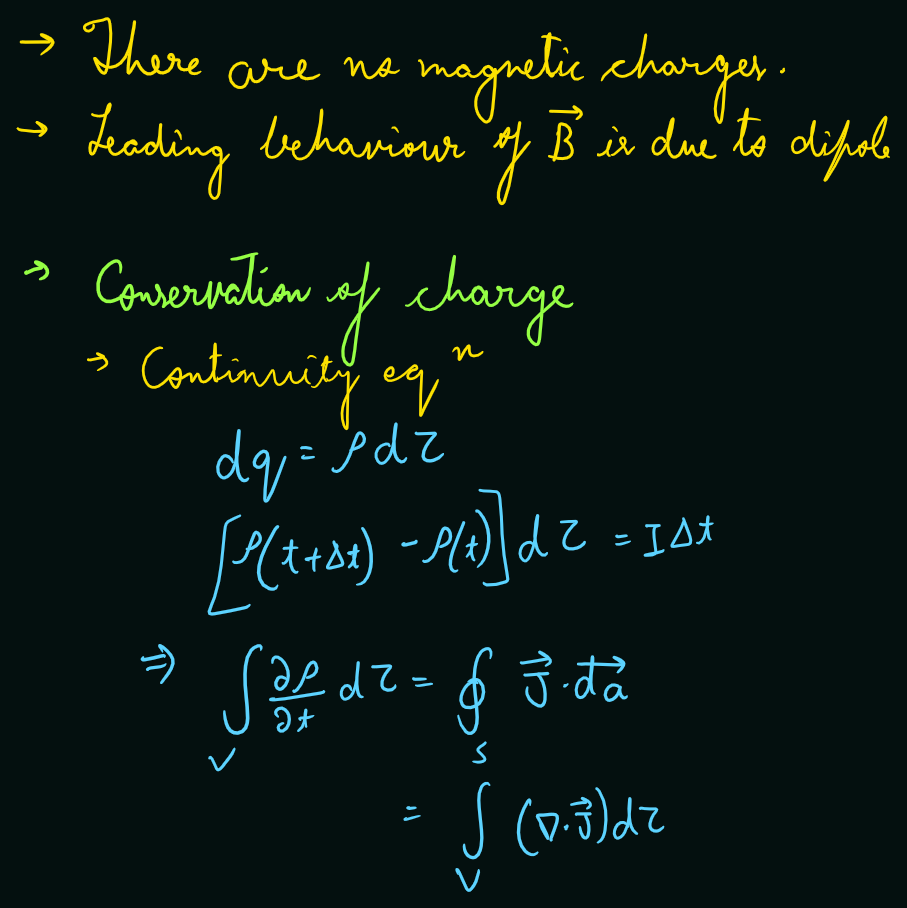 → There are no magnetic charges.
→ Leading behaviour of B⃗ is due to dipole
→ Conservation of charge
→ Continuity eqⁿ
dq = ρdτ
[ρ(t+Δt) - ρ(t)]dτ = IΔt
⇒ ∫_V ∂ρ/∂t dτ = ∮_S J⃗·da⃗
= ∫_V (∇·J⃗)dτ